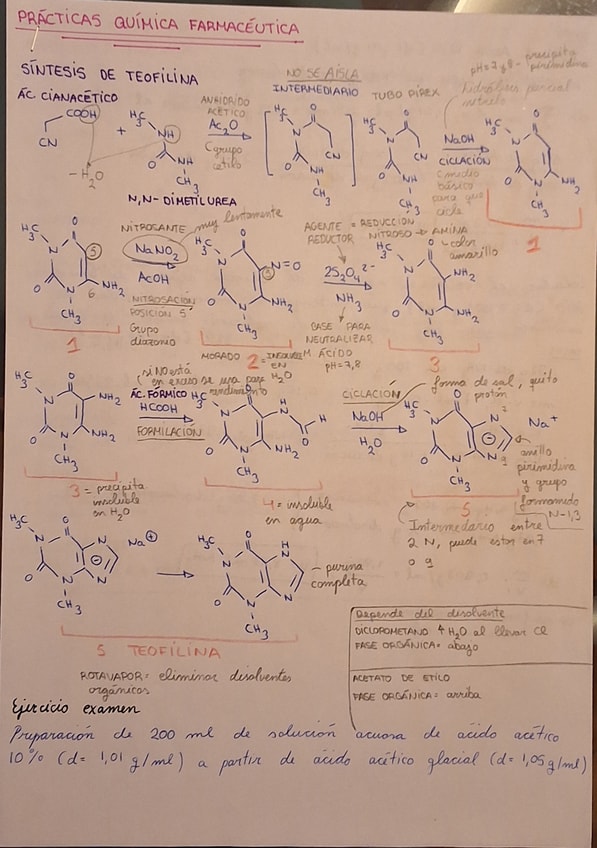 PRÁCTICAS QUÍMICA FARMACÉUTICA
SÍNTESIS DE TEOFILINA
ÁC. CIANACÉTICO
COOH
CN
+
H3C
NH
O
NH
CH3
- H2O
N,N- DIMETILUREA
ANHIDRIDO
ACÉTICO
Ac2O
NO SE AÍSLA
INTERMEDIARIO
H3C
N
O
CN
O
NH
CH3
TUBO PIREX
H3C
N
O
CN
O
NH
CH3
pH=7,8 - precipita
pirimidina
hidrólisis parcial
nitrilo
NaOH
CICLACIÓN
medio
básico
para que
cicle
H3C
N
O
O
N
NH2
CH3
1
H3C
O
N
5
6
O
N
NH2
CH3
1
NITROSANTE
muy lentamente
NaNO2
AcOH
NITROSACIÓN
POSICIÓN 5
Grupo
diazonio
H3C
O
N
5
N=O
O
N
NH2
CH3
MORADO
2 = INSOLUBLE
EN
H2O
AGENTE = REDUCCIÓN
REDUCTOR NITROSO → AMINA
- color
amarillo
2S2O4 2-
NH3
BASE PARA
NEUTRALIZAR
ÁCIDO
pH=7,8
H3C
O
N
NH2
O
N
NH2
CH3
3
H3C
O
N
NH2
O
N
NH2
CH3
3 = precipita
insoluble
en H2O
si NO está
en exceso se usa para
rendimiento
ÁC. FÓRMICO
HCOOH
FORMILACIÓN
H3C
O
H
N
H
N
O
O
N
NH2
CH3
4 = insoluble
en agua
CICLACIÓN
NaOH
H2O
forma de sal, quito
protón
H3C
O
N
N
7
O
N
N
9
CH3
Na+
anillo
pirimidina
y grupo
formamido
N-1,3
5
Intermediario entre
2 N, puede estar en 7
o 9
H3C
O
N
N
O
N
N
CH3
Na+
H3C
O
H
N
N
O
N
N
CH3
- purina
completa
5 TEOFILINA
ROTAVAPOR = eliminar disolventes
orgánicos
Depende del disolvente
DICLOROMETANO H2O al llevar Cl
FASE ORGÁNICA = abajo
ACETATO DE ETILO
FASE ORGÁNICA = arriba
Ejercicio examen
Preparación de 200 ml de solución acuosa de ácido acético
10% (d= 1,01 g/ml) a partir de ácido acético glacial (d= 1,05 g/ml)